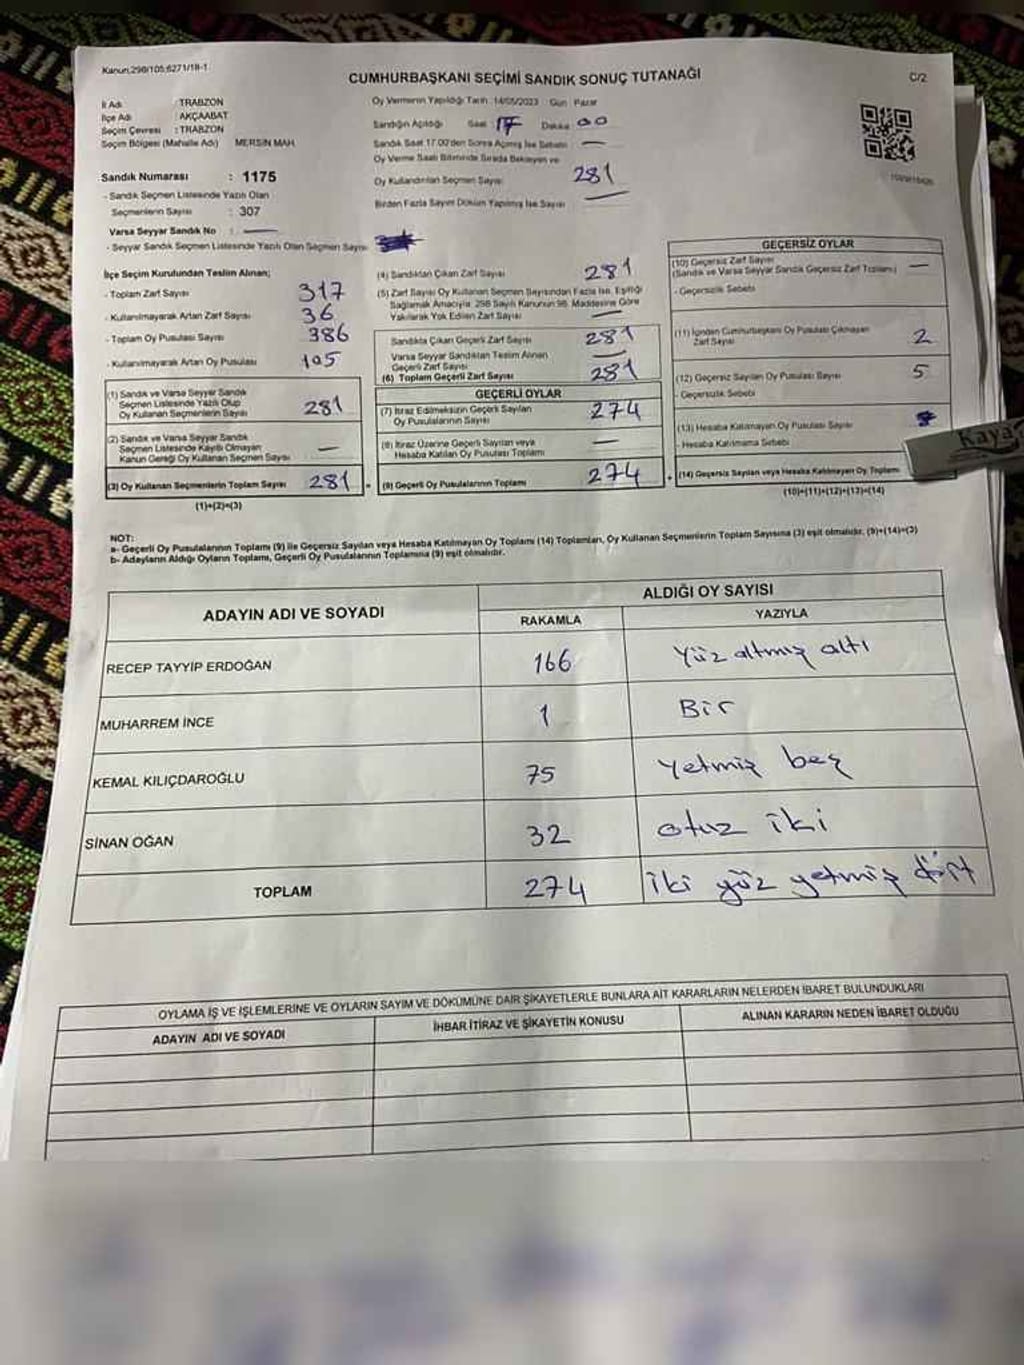 Kanun;298/105;6271/18-1
CUMHURBAŞKANI SEÇİMİ SANDIK SONUÇ TUTANAĞI
C/2
İl Adı : TRABZON
İlçe Adı : AKÇAABAT
Seçim Çevresi : TRABZON
Seçim Bölgesi (Mahalle Adı) MERSİN MAH.
Sandık Numarası : 1175
- Sandık Seçmen Listesinde Yazılı Olan
Seçmenlerin Sayısı : 307
Varsa Seyyar Sandık No : —
- Seyyar Sandık Seçmen Listesinde Yazılı Olan Seçmen Sayısı
Oy Vermenin Yapıldığı Tarih : 14/05/2023 Gün : Pazar
Sandığın Açıldığı Saat : 17 Dakika : 00
Sandık Saat 17.00'den Sonra Açılmış İse Sebebi : —
Oy Verme Saati Bitiminde Sırada Bekleyen ve
Oy Kullandırılan Seçmen Sayısı : 281
Birden Fazla Sayım Döküm Yapılmış İse Sayısı —
İlçe Seçim Kurulundan Teslim Alınan;
- Toplam Zarf Sayısı 317
- Kullanılmayarak Artan Zarf Sayısı 36
- Toplam Oy Pusulası Sayısı 386
- Kullanılmayarak Artan Oy Pusulası 105
(1) Sandık ve Varsa Seyyar Sandık
Seçmen Listesinde Yazılı Olup
Oy Kullanan Seçmenlerin Sayısı 281
(2) Sandık ve Varsa Seyyar Sandık
Seçmen Listesinde Kayıtlı Olmayan
Kanun Gereği Oy Kullanan Seçmen Sayısı —
(3) Oy Kullanan Seçmenlerin Toplam Sayısı 281
(1)+(2)=(3)
(4) Sandıktan Çıkan Zarf Sayısı 281
(5) Zarf Sayısı Oy Kullanan Seçmen Sayısından Fazla İse, Eşitliği
Sağlamak Amacıyla, 298 Sayılı Kanunun 98. Maddesine Göre
Yakılarak Yok Edilen Zarf Sayısı —
Sandıkta Çıkan Geçerli Zarf Sayısı 281
Varsa Seyyar Sandıktan Teslim Alınan
Geçerli Zarf Sayısı —
(6) Toplam Geçerli Zarf Sayısı 281
GEÇERLİ OYLAR
(7) İtiraz Edilmeksizin Geçerli Sayılan
Oy Pusulalarının Sayısı 274
(8) İtiraz Üzerine Geçerli Sayılan veya
Hesaba Katılan Oy Pusulası Toplamı —
(9) Geçerli Oy Pusulalarının Toplamı 274
GEÇERSİZ OYLAR
(10) Geçersiz Zarf Sayısı
(Sandık ve Varsa Seyyar Sandık Geçersiz Zarf Toplamı) —
- Geçersizlik Sebebi
(11) İçinden Cumhurbaşkanı Oy Pusulası Çıkmayan
Zarf Sayısı 2
(12) Geçersiz Sayılan Oy Pusulası Sayısı 5
- Geçersizlik Sebebi
(13) Hesaba Katılmayan Oy Pusulası Sayısı
- Hesaba Katılmama Sebebi
Kaya
(14) Geçersiz Sayılan veya Hesaba Katılmayan Oy Toplamı
(10)+(11)+(12)+(13)=(14)
NOT:
a- Geçerli Oy Pusulalarının Toplamı (9) ile Geçersiz Sayılan veya Hesaba Katılmayan Oy Toplamı (14) Toplamları, Oy Kullanan Seçmenlerin Toplam Sayısına (3) eşit olmalıdır. (9)+(14)=(3)
b- Adayların Aldığı Oyların Toplamı, Geçerli Oy Pusulalarının Toplamına (9) eşit olmalıdır.
ADAYIN ADI VE SOYADI
ALDIĞI OY SAYISI
RAKAMLA YAZIYLA
RECEP TAYYİP ERDOĞAN 166 Yüz altmış altı
MUHARREM İNCE 1 Bir
KEMAL KILIÇDAROĞLU 75 Yetmiş beş
SİNAN OĞAN 32 otuz iki
TOPLAM 274 iki yüz yetmiş dört
OYLAMA İŞ VE İŞLEMLERİNE VE OYLARIN SAYIM VE DÖKÜMÜNE DAİR ŞİKAYETLERLE BUNLARA AİT KARARLARIN NELERDEN İBARET BULUNDUKLARI
ADAYIN ADI VE SOYADI İHBAR İTİRAZ VE ŞİKAYETİN KONUSU ALINAN KARARIN NEDEN İBARET OLDUĞU